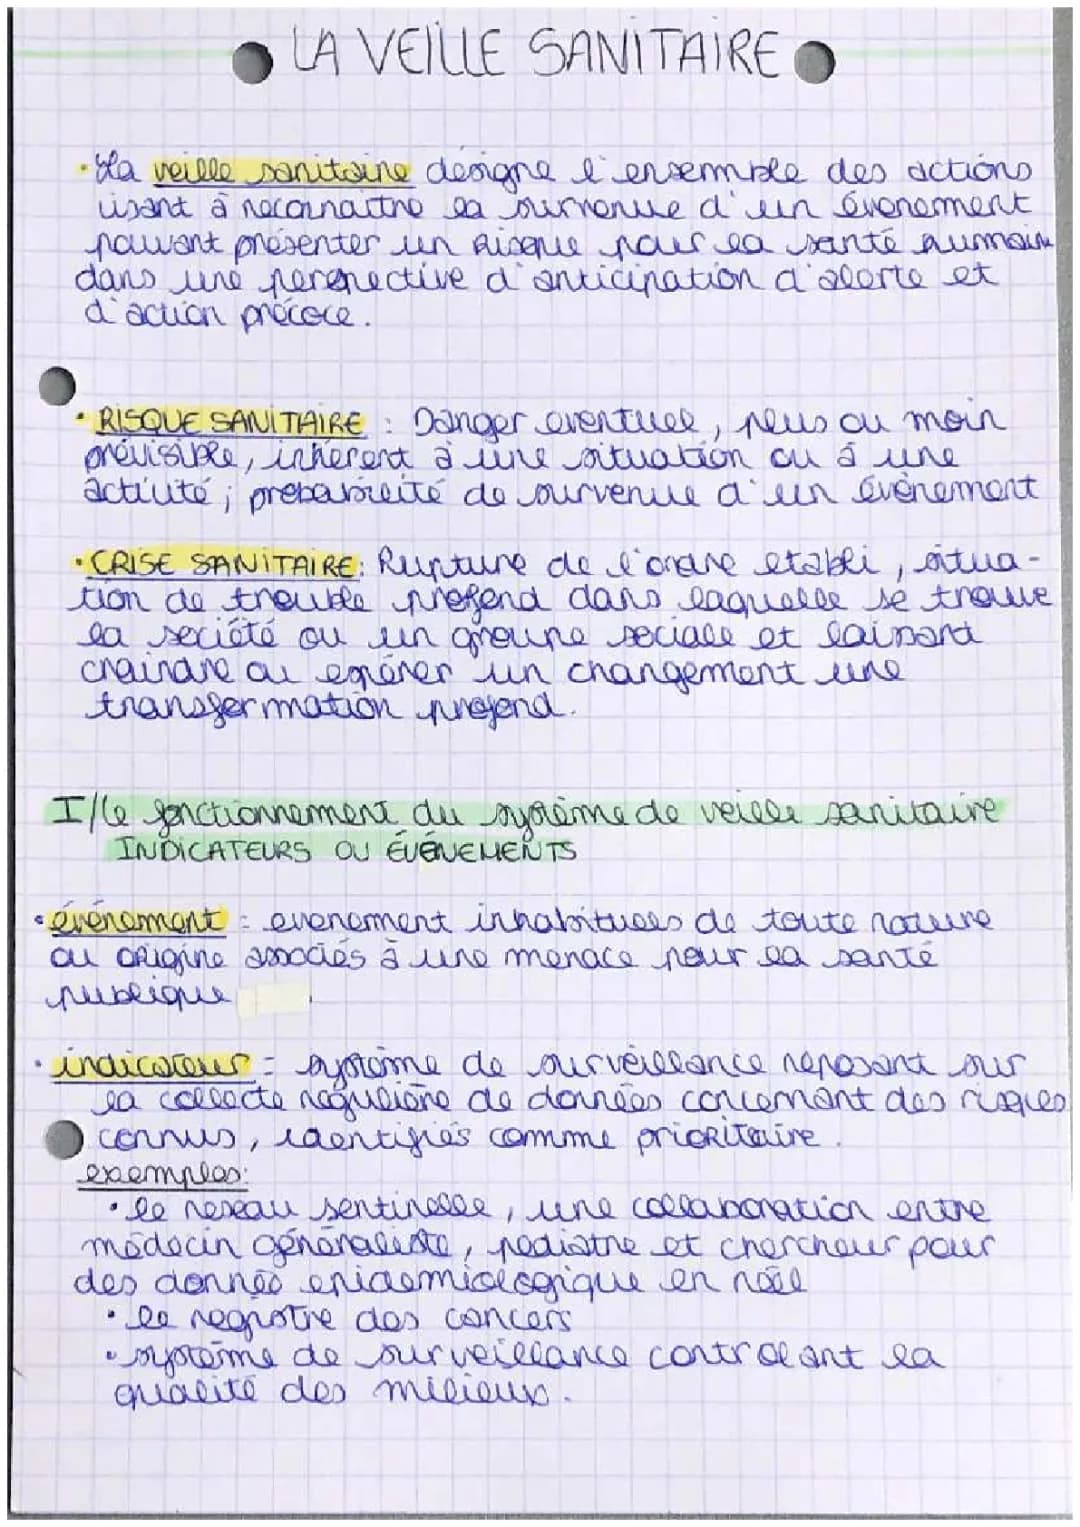 LA VEILLE SANITAIRE
• La veille sanitaire désigne l'ensemble des actions
visant à reconnaitre la survenue d'un évenement
pouvant présenter un Risque pour la santé humaine
dans une perspective d'anticipation d'alerte et
d'action précoce.
• RISQUE SANITIAIRE : Danger eventuel, plus ou moin
prévisible, inhérent à une situation ou à une
activité ; probabilité de survenue d'un évènement
• CRISE SANITAIRE: Rupture de l'ordre etabli, situa-
tion de trouble profond dans laquelle se trouve
la société ou un groupe sociale et laissant
craindre ou espérer un changement une
transformation profond.
I/Le fonctionnement du système de veille sanitaire
INDICATEURS OU ÉVÉNEMENTS
• événement : evenement inhabituels de toute nature
ou origine associés à une menace pour la santé
publique
• indicateur = système de surveillance reposant sur
la collecte régulière de données concernant des risques
connus, identifiés comme prioritaire.
exemples:
• le reseau sentinelle, une collaboration entre
médecin généraliste, pediatre et chercheur pour
des donnée epidemiologique en réel
• le registre des cancers
• système de surveillance controlant la
qualité des milieux.